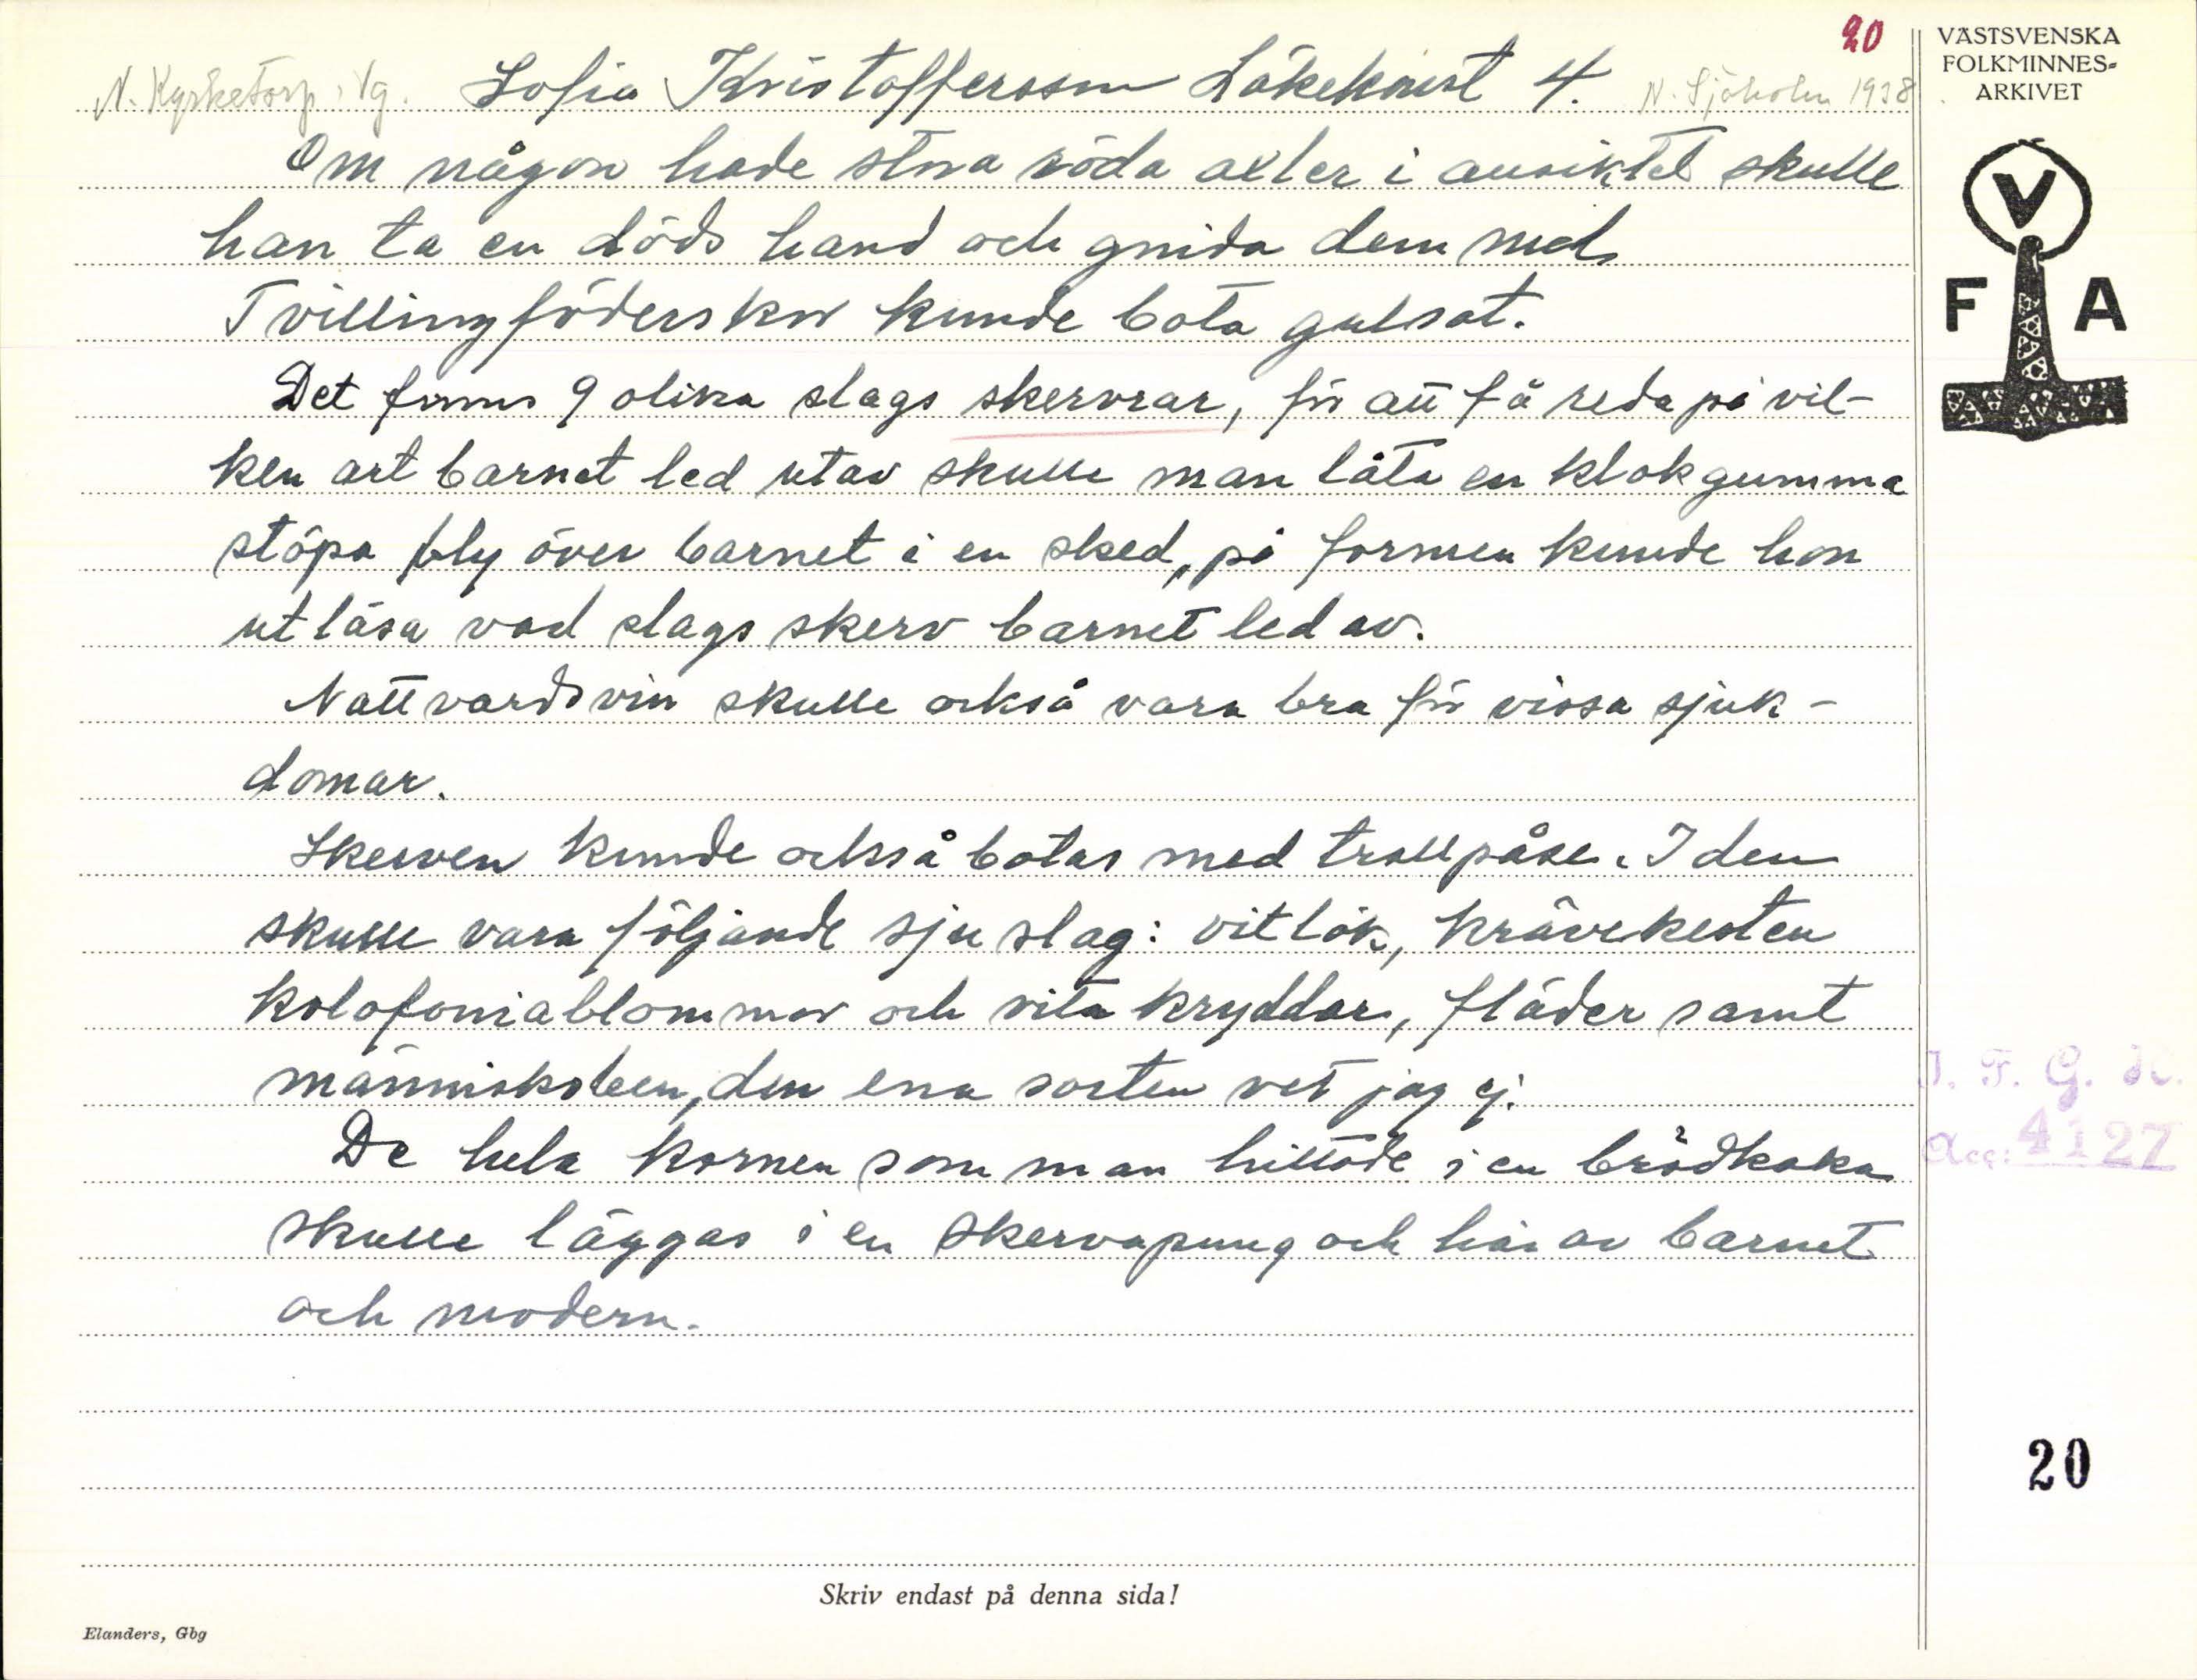 20
N. Kyrketorp, Vg. Sofia Kristoffersson Läkekonst 4. N. Sjöholm 1938
VÄSTSVENSKA
FOLKMINNES-
ARKIVET
V
F A
Om någon hade stora röda axler i ansiktet skulle
han ta en döds hand och gnida dem med
Tvillingföderskor kunde bota gulsot.
Det finns 9 olika slags skervrar, för att få reda på vil-
ken art barnet led utav skulle man låta en klok gumma
stöpa bly över barnet i en sked, på formen kunde hon
utläsa vad slags skerv barnet led av.
Nattvardsvin skulle också vara bra för vissa sjuk-
domar.
Skerven kunde också botas med trollpåse. I den
skulle vara följande sju slag: vitlök, krävekesten
kolofoniablommor och vita kryddor, fläder samt
människoben, den ena sorten vet jag ej.
De hela kornen som man hittade i en brödkaka
skulle läggas i en skervapung och hår av barnet
och modern.
I. F. G. H.
Acc: 4127
20
Skriv endast på denna sida!
Elanders, Gbg